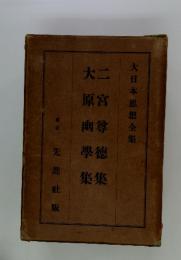 大日本思想全集
二宮尊徳集
大原幽學集
東京 先進社版